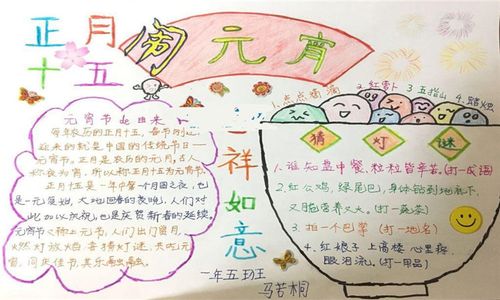 正月
十五
闹元宵
元宵节de由来
每年农历的正月十五,春节刚过,
迎来的就是中国的传统节日—
元宵节。正月是农历的元月,古人
称夜为宵,所以称正月十五为元宵节。
正月十五是一年中第一个月圆之夜,也
是一元复始,大地回春的夜晚,人们对
此加以庆祝,也是庆贺新春的延续。
元宵节又称上元节,人们出门赏月,
燃灯放焰,喜猜灯谜,共吃元
宵,同庆佳节,其乐融融。
祥如意
一年五班
马若桐
1.点点滴滴
2.红萝卜
3.五指山
4.蜡烛
猜灯谜
1.谁知盘中餐,粒粒皆辛苦。(打一成语)
2.红公鸡,绿尾巴,身体钻到地底下,
又脆营养又大。(打一蔬菜)
3.拍一个巴掌(打一地名)
4.红娘子上高楼 心里疼,
眼泪流。(打一用品)